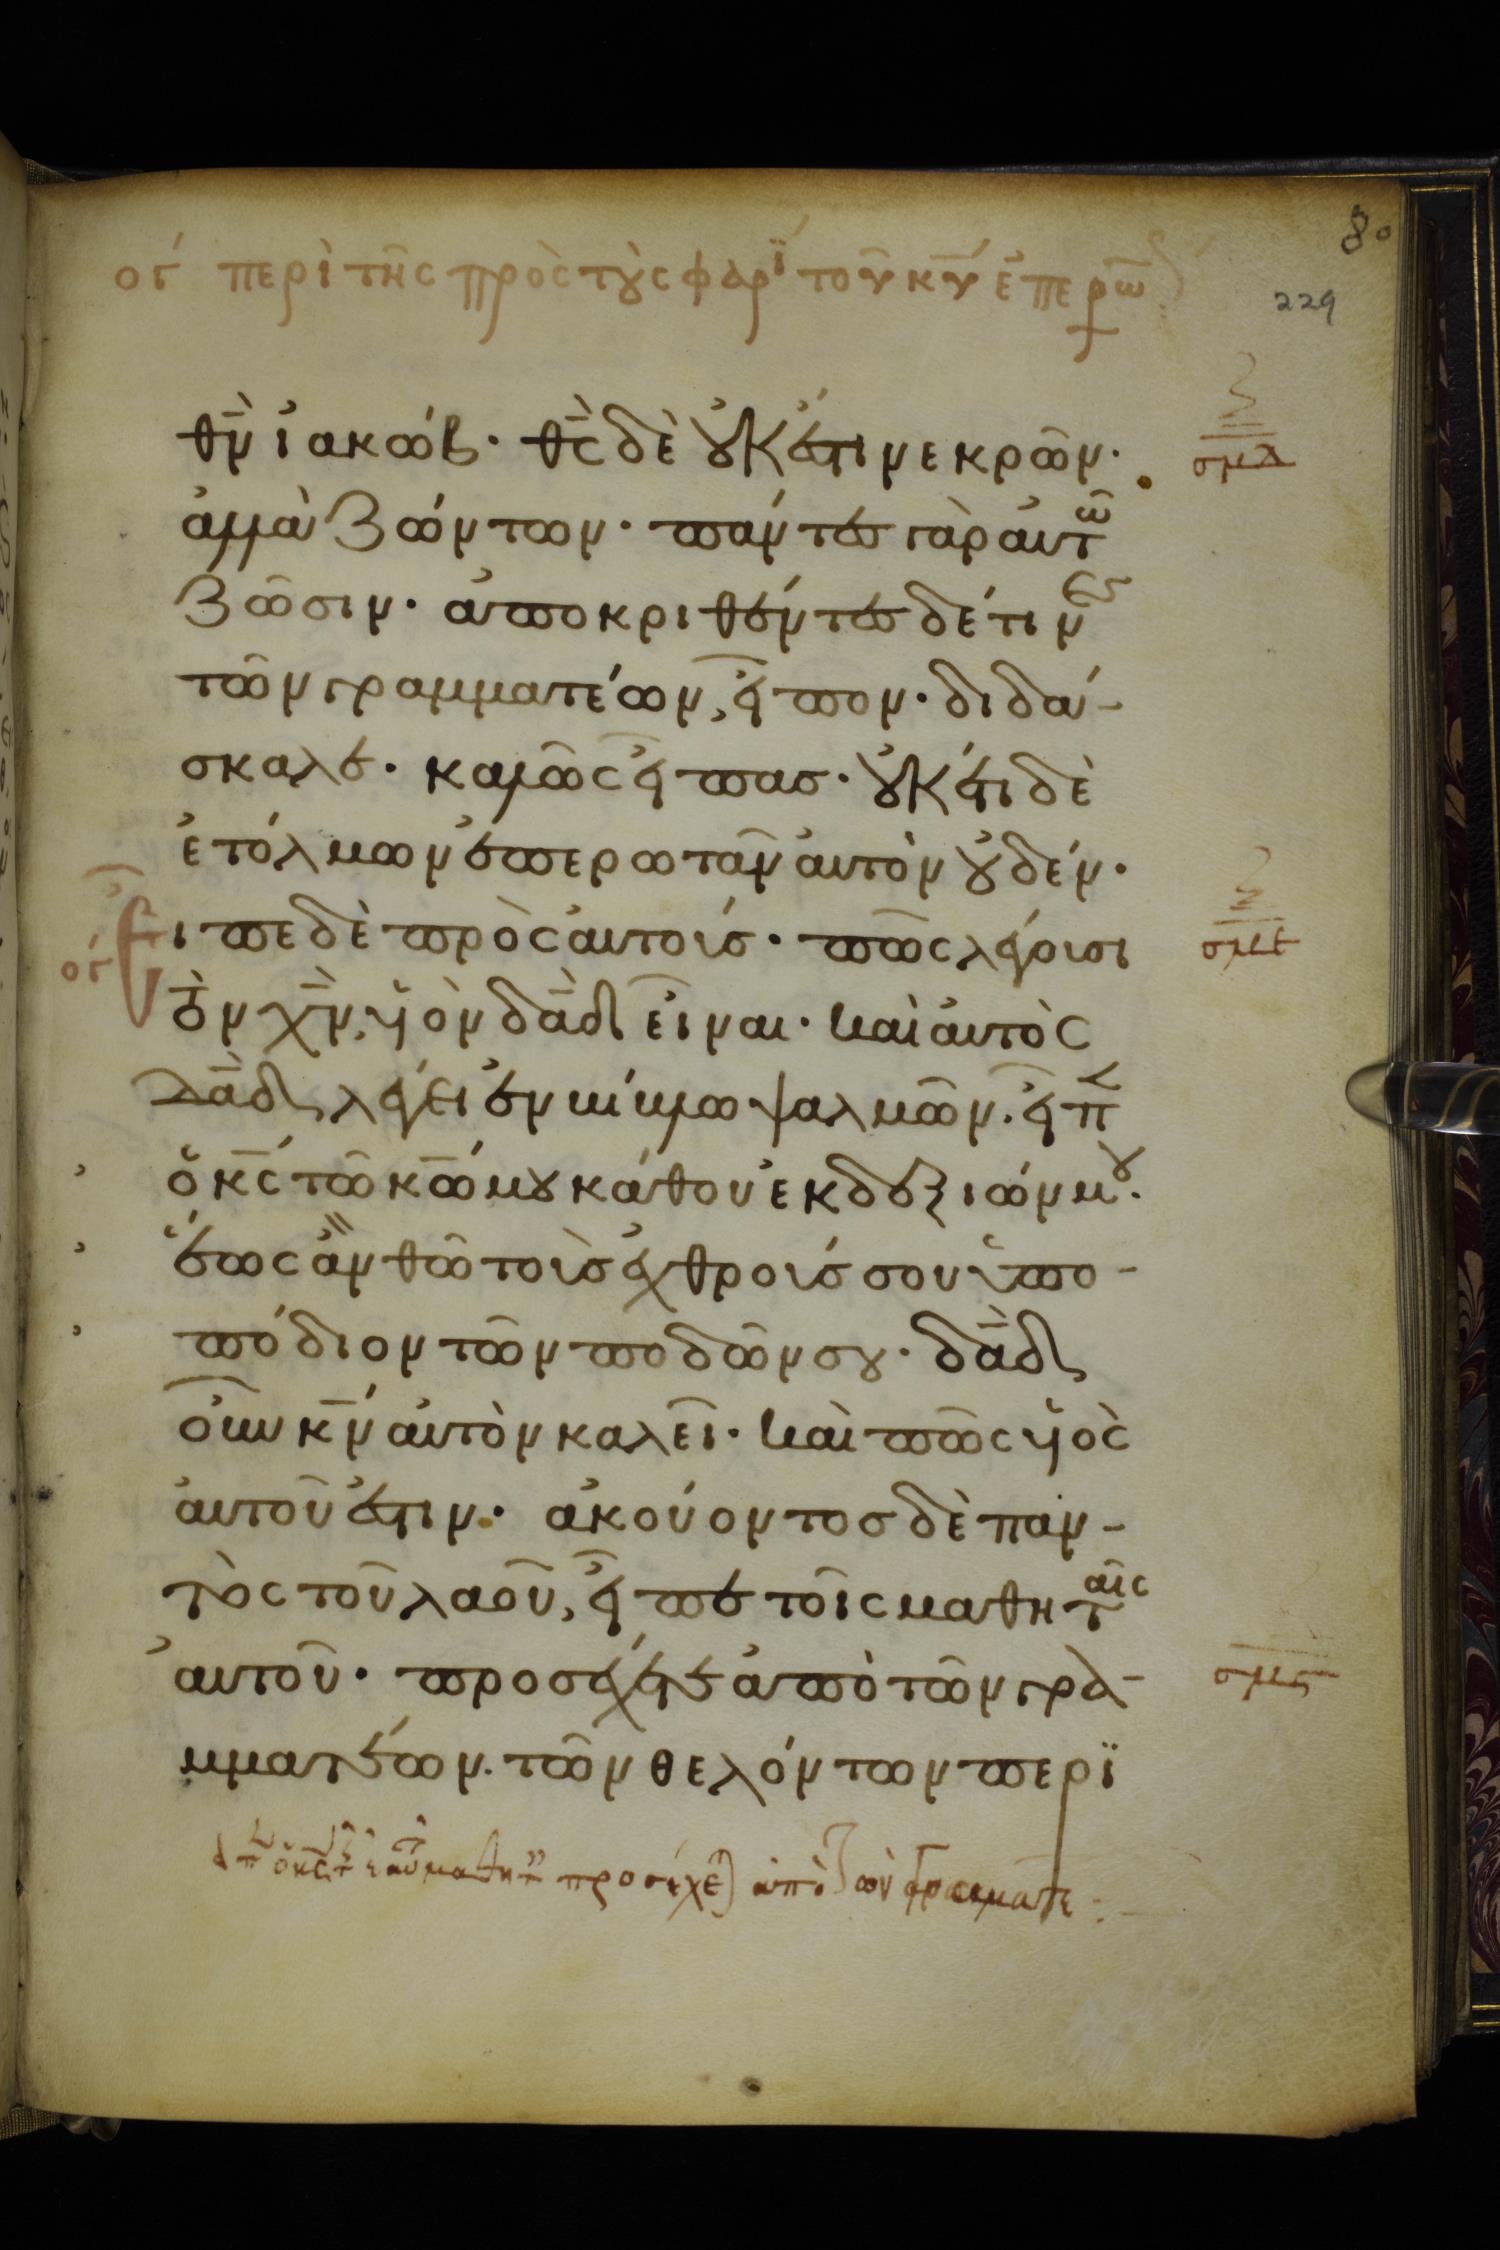 80
ογ περὶ τῆς πρὸς τοὺς φαρϊ τοῦ κυ ἐπερω
229
θν ἰακώβ· θς δὲ οὐκ ἔστι νεκρῶν·
σμδ
ἀλλὰ ζώντων· πάντες γὰρ αὐτῶ
ζῶσιν· ἀποκριθέντες δέ τινες
τῶν γραμματέων, εἶπον· διδά-
σκαλε· καλῶς εἶπας· οὐκ ἔτι δὲ
ἐτόλμων ἐπερωτᾶν αὐτὸν οὐδέν·
ογ Εἶπε δὲ πρὸς αὐτούς· πῶς λέγουσι
σμε
τὸν χν, υἱὸν δαδ εἶναι· καὶ αὐτὸς
δαδ λέγει ἐν βίβλω ψαλμῶν. εἶπ
ὁ κς τῶ κω μου κάθου ἐκ δεξιῶν μου·
ἕως ἂν θῶ τοὺς ἐχθρούς σου ὑπο-
πόδιον τῶν ποδῶν σου· δαδ
οὖν κν αὐτὸν καλεῖ· καὶ πῶς υἱὸς
αὐτοῦ ἐστιν· ἀκούοντος δὲ παν-
τὸς τοῦ λαοῦ, εἶπε τοῖς μαθηταῖς
αὐτοῦ· προσέχετε ἀπὸ τῶν γρα-
σμς
μματέων. τῶν θελόντων περϊ
ὁ κς μαθητ προσέχε ἀπὸ τῶν γραμματε :